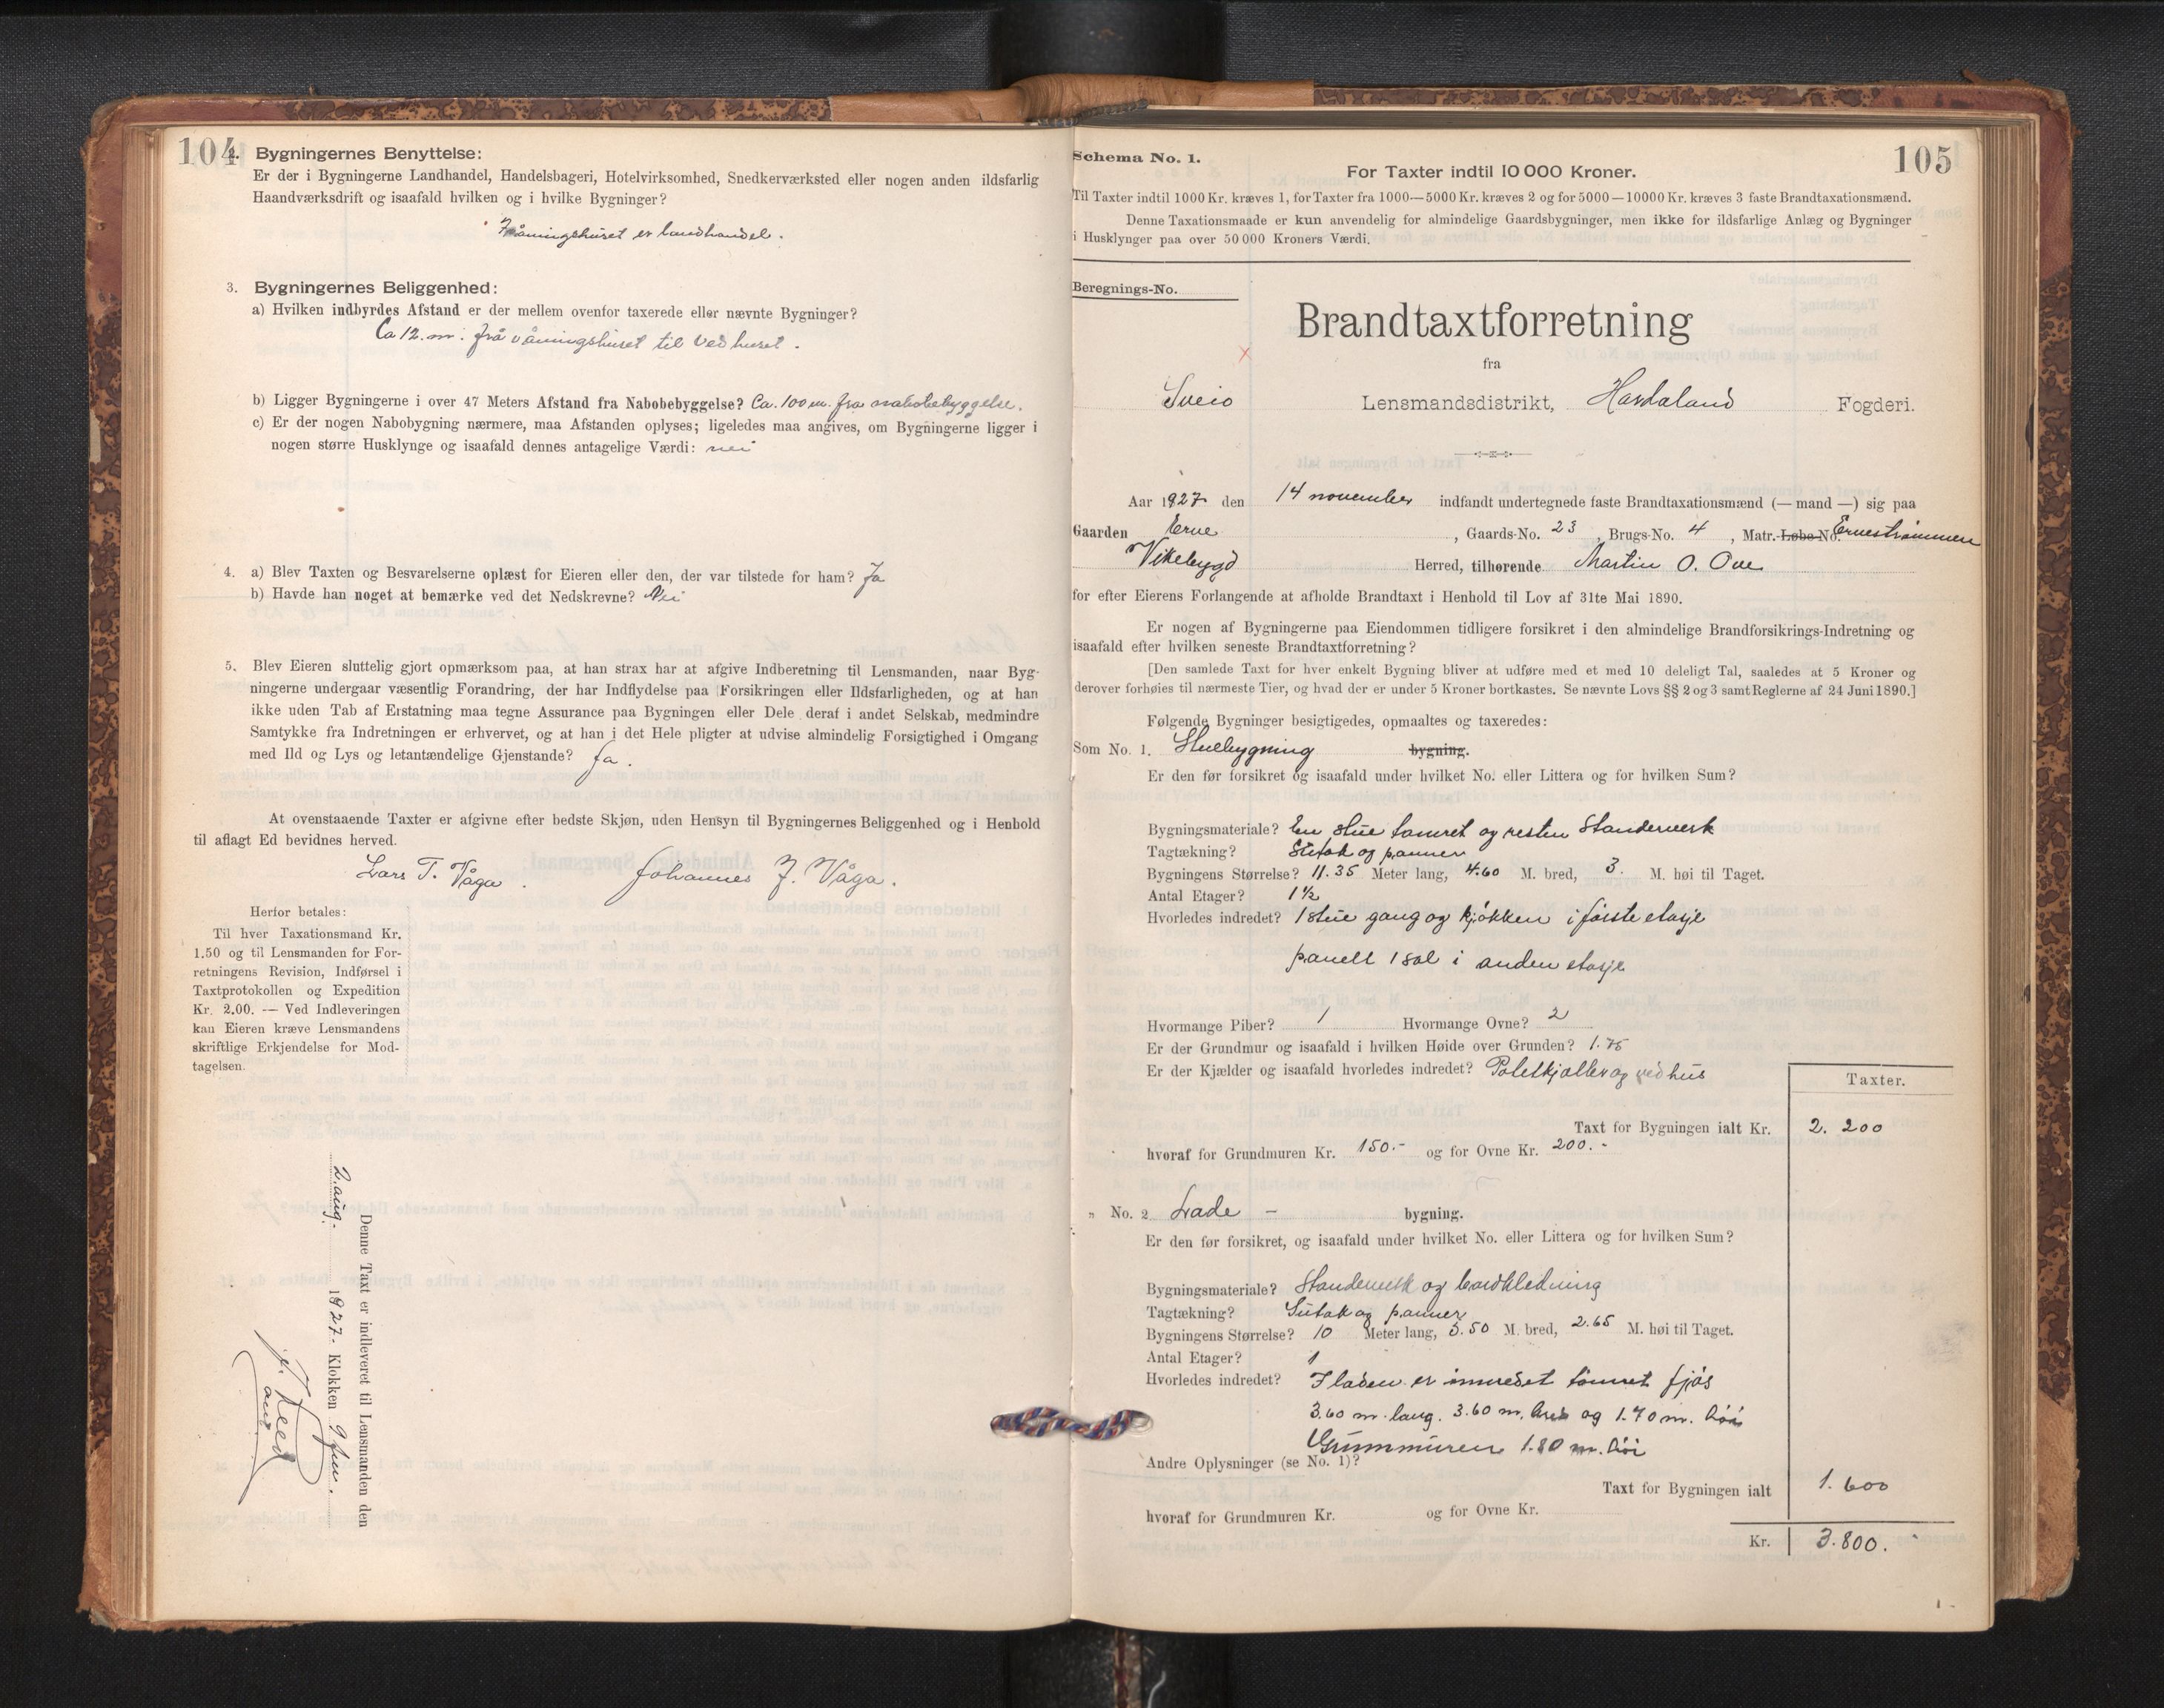 104
2. Bygningernes Benyttelse:
Er der i Bygningerne Landhandel, Handelsbageri, Hotelvirksomhed, Snedkerværksted eller nogen anden ildsfarlig
Haandværksdrift og isaafald hvilken og i hvilke Bygninger?
I våningshuset er landhandel.
3. Bygningernes Beliggenhed:
a) Hvilken indbyrdes Afstand er der mellem ovenfor taxerede eller nævnte Bygninger?
Ca 12. m. frå våningshuset til vedhuset.
b) Ligger Bygningerne i over 47 Meters Afstand fra Nabobebyggelse? Ca. 100 m. fra nabobebyggelse.
c) Er der nogen Nabobygning nærmere, maa Afstanden oplyses; ligeledes maa angives, om Bygningerne ligger i
nogen større Husklynge og isaafald dennes antagelige Værdi: nei
4. a) Blev Taxten og Besvarelserne oplæst for Eieren eller den, der var tilstede for ham? Ja
b) Havde han noget at bemærke ved det Nedskrevne? Nei
5. Blev Eieren sluttelig gjort opmærksom paa, at han strax har at afgive Indberetning til Lensmanden, naar Byg-
ningerne undergaar væsentlig Forandring, der har Indflydelse paa Forsikringen eller Ildsfarligheden, og at han
ikke uden Tab af Erstatning maa tegne Assurance paa Bygningen eller Dele deraf i andet Selskab, medmindre
Samtykke fra Indretningen er erhvervet, og at han i det Hele pligter at udvise almindelig Forsigtighed i Omgang
med Ild og Lys og letantændelige Gjenstande? Ja.
At ovenstaaende Taxter er afgivne efter bedste Skjøn, uden Hensyn til Bygningernes Beliggenhed og i Henhold
til aflagt Ed bevidnes herved.
Lars T. Våga. Johannes J. Våga.
Herfor betales:
Til hver Taxationsmand Kr.
1.50 og til Lensmanden for For-
retningens Revision, Indførsel i
Taxtprotokollen og Expedition
Kr. 2.00. — Ved Indleveringen
kan Eieren kræve Lensmandens
skriftlige Erkjendelse for Mod-
tagelsen.
Denne Taxt er indleveret til Lensmanden den
2. aug. 1927. Klokken 9 fm.
105
Schema No. 1.
For Taxter indtil 10 000 Kroner.
Til Taxter indtil 1000 Kr. kræves 1, for Taxter fra 1000—5000 Kr. kræves 2 og for 5000—10000 Kr. kræves 3 faste Brandtaxationsmænd.
Denne Taxationsmaade er kun anvendelig for almindelige Gaardsbygninger, men ikke for ildsfarlige Anlæg og Bygninger
i Husklynger paa over 50 000 Kroners Værdi.
Beregnings-No.
Brandtaxtforretning
fra
Sveio Lensmandsdistrikt, Hardaland Fogderi.
Aar 1927 den 14 november indfandt undertegnede faste Brandtaxationsmænd (— mand —) sig paa
Gaarden Erve, Gaards-No. 23, Brugs-No. 4, Matr.-Løbe-No. Ervestrømmen
Vikebygd Herred, tilhørende Martin O. Ove
for efter Eierens Forlangende at afholde Brandtaxt i Henhold til Lov af 31te Mai 1890.
Er nogen af Bygningerne paa Eiendommen tidligere forsikret i den almindelige Brandforsikrings-Indretning og
isaafald efter hvilken seneste Brandtaxtforretning?
[Den samlede Taxt for hver enkelt Bygning bliver at udføre med et med 10 deleligt Tal, saaledes at 5 Kroner og
derover forhøies til nærmeste Tier, og hvad der er under 5 Kroner bortkastes. Se nævnte Lovs §§ 2 og 3 samt Reglerne af 24 Juni 1890.]
Følgende Bygninger besigtigedes, opmaaltes og taxeredes:
Som No. 1. Stuebygning bygning.
Er den før forsikret og isaafald under hvilket No. eller Littera og for hvilken Sum?
Bygningsmateriale? En stue tømret og resten Standerverk
Tagtækning? Sutak og panner
Bygningens Størrelse? 11.35 Meter lang, 4.60 M. bred, 3. M. høi til Taget.
Antal Etager? 1½
Hvorledes indredet? 1 stue gang og kjøkken i første etasje
panelt 1 sal i anden etasje
Hvormange Piber? 1 Hvormange Ovne? 2
Er der Grundmur og isaafald i hvilken Høide over Grunden? 1.75
Er der Kjælder og isaafald hvorledes indredet? Potetkjeller og vedhus
Taxter.
Taxt for Bygningen ialt Kr. 2. 200
hvoraf for Grundmuren Kr. 150.- og for Ovne Kr. 200.-
„ No. 2 Lade - bygning.
Er den før forsikret, og isaafald under hvilket No. eller Littera og for hvilken Sum?
Bygningsmateriale? Standerverk og bordkledning
Tagtækning? Sutak og panner
Bygningens Størrelse? 10 Meter lang, 5.50 M. bred, 2.65 M. høi til Taget.
Antal Etager? 1
Hvorledes indredet? I laden er innredet tømret fjøs
3.60 m. lang. 3.60 m. bred og 1.70 m. høi
Grunnmuren 1.80 m. høi
Andre Oplysninger (se No. 1)?
Taxt for Bygningen ialt 1. 600
hvoraf for Grundmuren Kr. og for Ovne Kr.
Kr. 3.800.